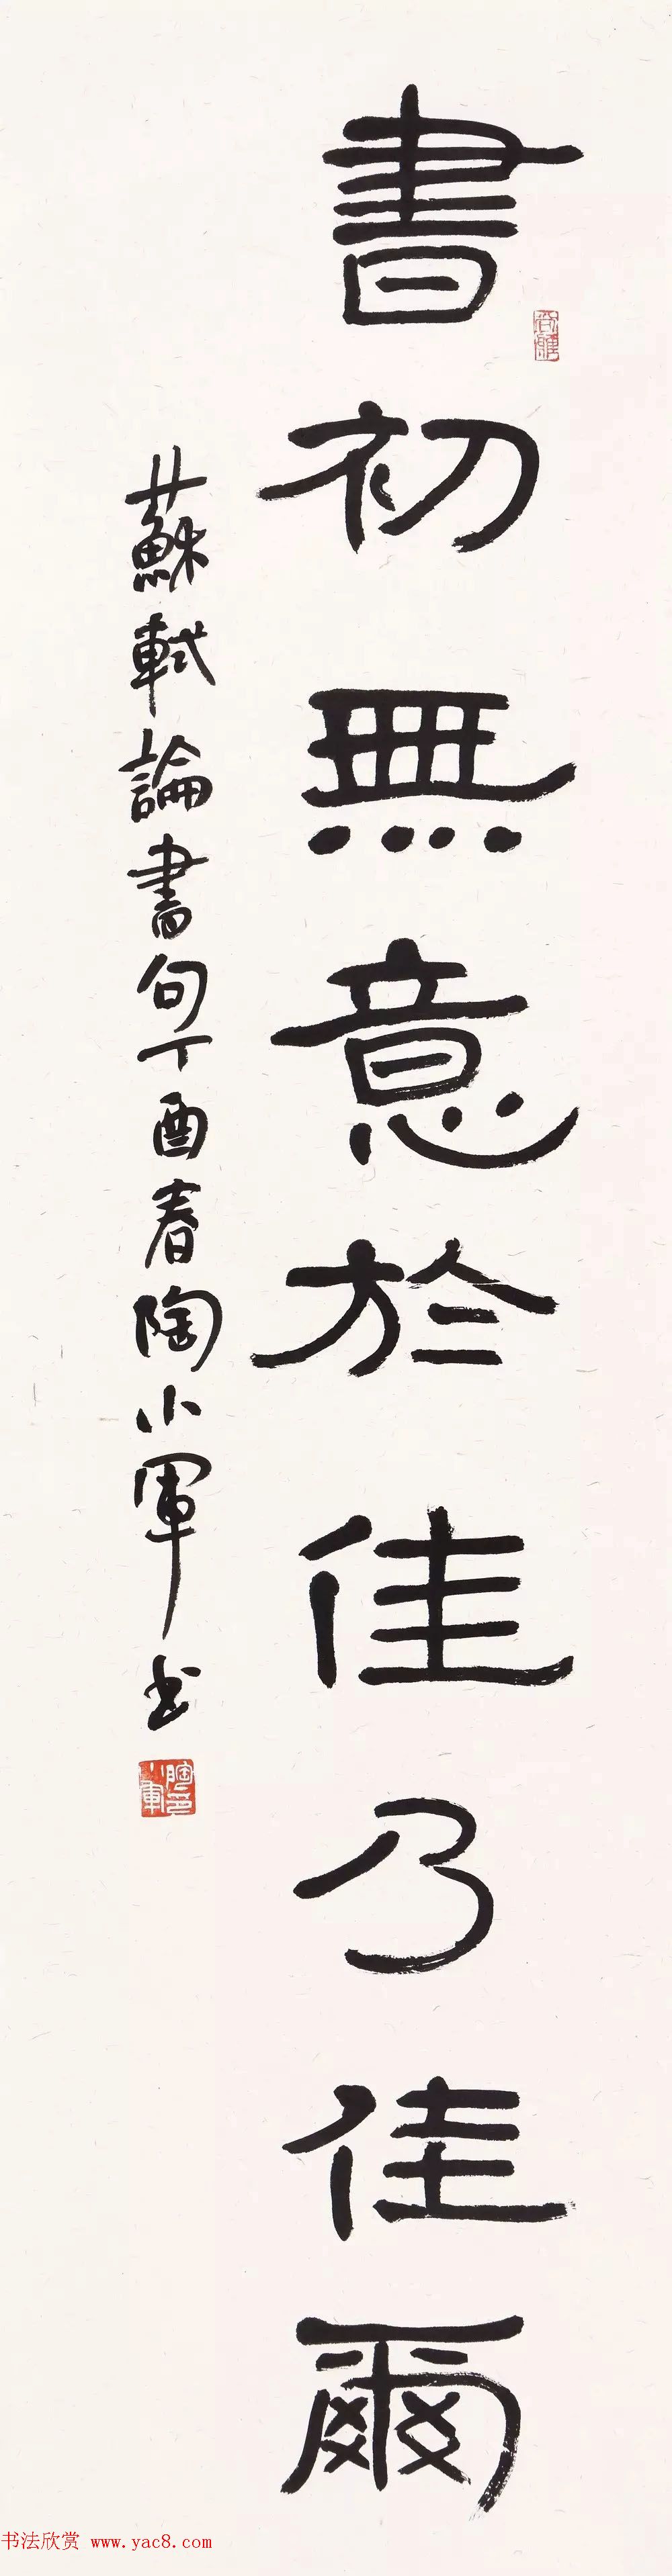 書初無意於佳乃佳爾
蘇軾論書句丁酉春陶小軍书
陶小軍
书法欣赏 www.yac8.com